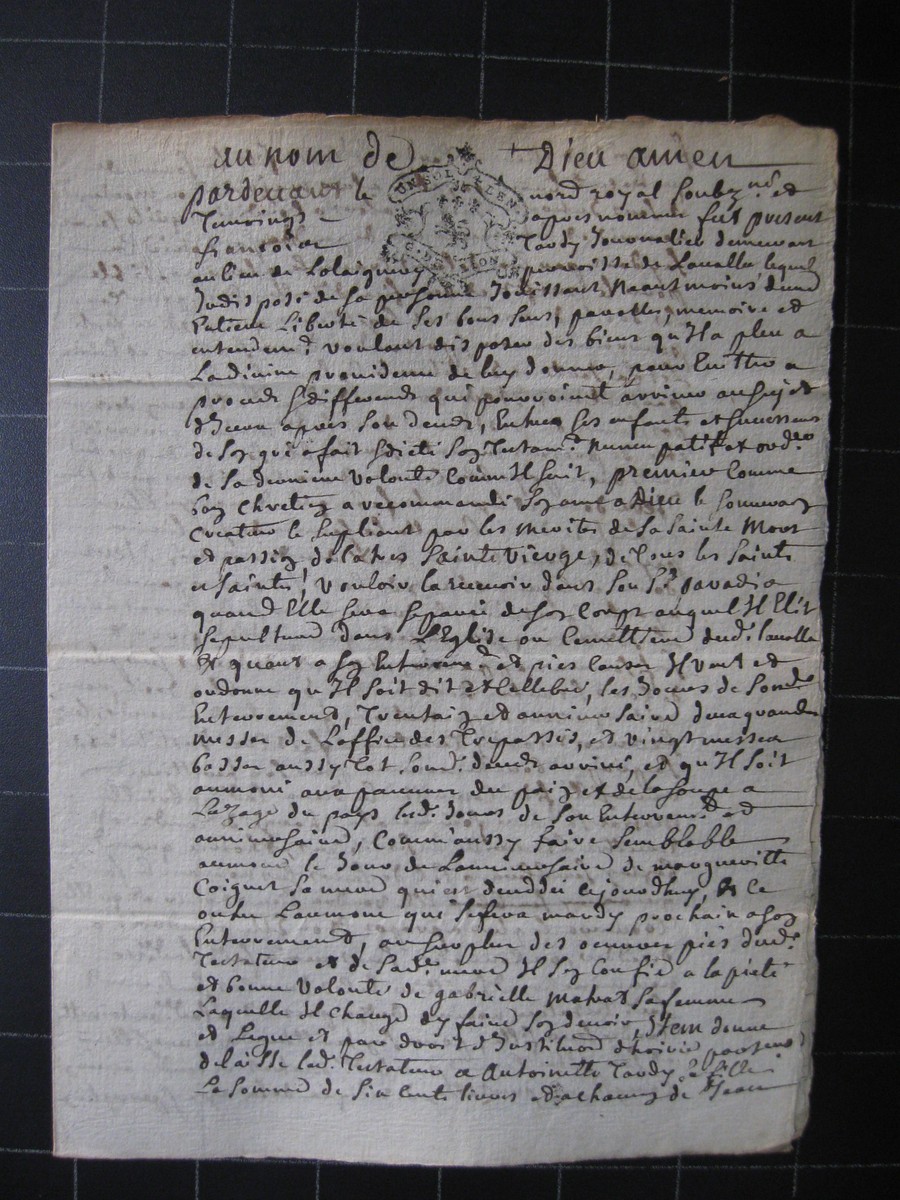 au nom de Dieu amen
pardevant le nord royal soubzné et
Temoings apres nommé fut present
francois Tardy Journalier demeurant
au lieu de parroisse de Lavalla lequel
Indisposé de sa personne Jouissant Neantmoins dune
Entiere Liberté de ses bons sens, parolles, memoire et
entendemt voulant disposer des biens qu'Il a pleu a
La divine providence de luy donner, pour Eviter a
proces & differends qui pourroint arriver au sujet
d'Iceux apres son deceds, Entre ses enfants et successeurs
de soy qu'a fait & dicté Soy Testamt Nuncupatif et ordre
de sa derniere volonté Comm'Il suit, premier Comme
boy Chretiey a recommandé Soy ame a Dieu le Souveray
Createur le supliant par les merites de sa Sainte Mort
et passioy, de la tres Sainte Vierge, de tous les Saints
et Saintes, vouloir la recevoir dans son St paradis
quand Elle sera separée de soy Corps auquel Il Elit
sepulture dans L'Eglise ou Cemettiere dudt Lavalla
Et quant a soy Enterremt et pies causes Il veut et
ordonne qu'Il soit dit et cellebré, les Jours de sond
Enterrement, Trentaiy et anniversaire grandes
messes de L'office des Trepassés, et vingt messes
basses aussy tot sond. deceds arrivé, et qu'Il soit
aumoné aux pauvres du paiy et de la soupe a
L'uzage du pays lesd. Jours de son Enterremt et
anniversaire, Comm'aussy faire semblable
aumone le Jour de L'anniversaire de margueritte
Coignet sa mere qui est deceddée cejourdhuy, & ce
outre L'aumone qui se fera mardy prochain a soy
Enterrement, au surplus des oeuvres pies dudt
Testateur et de sade mere Il s'ey Confie a la pieté
et bonne volonté de gabrielle Matrat sa femme
Laquelle Il Charge d'y faire soy devoir, Item donne
et Legue et par droit d'Institution d'hoirie
delaisse led. Testateur a Antoinette Tardy sa fille
La somme de six cents livres de Jean